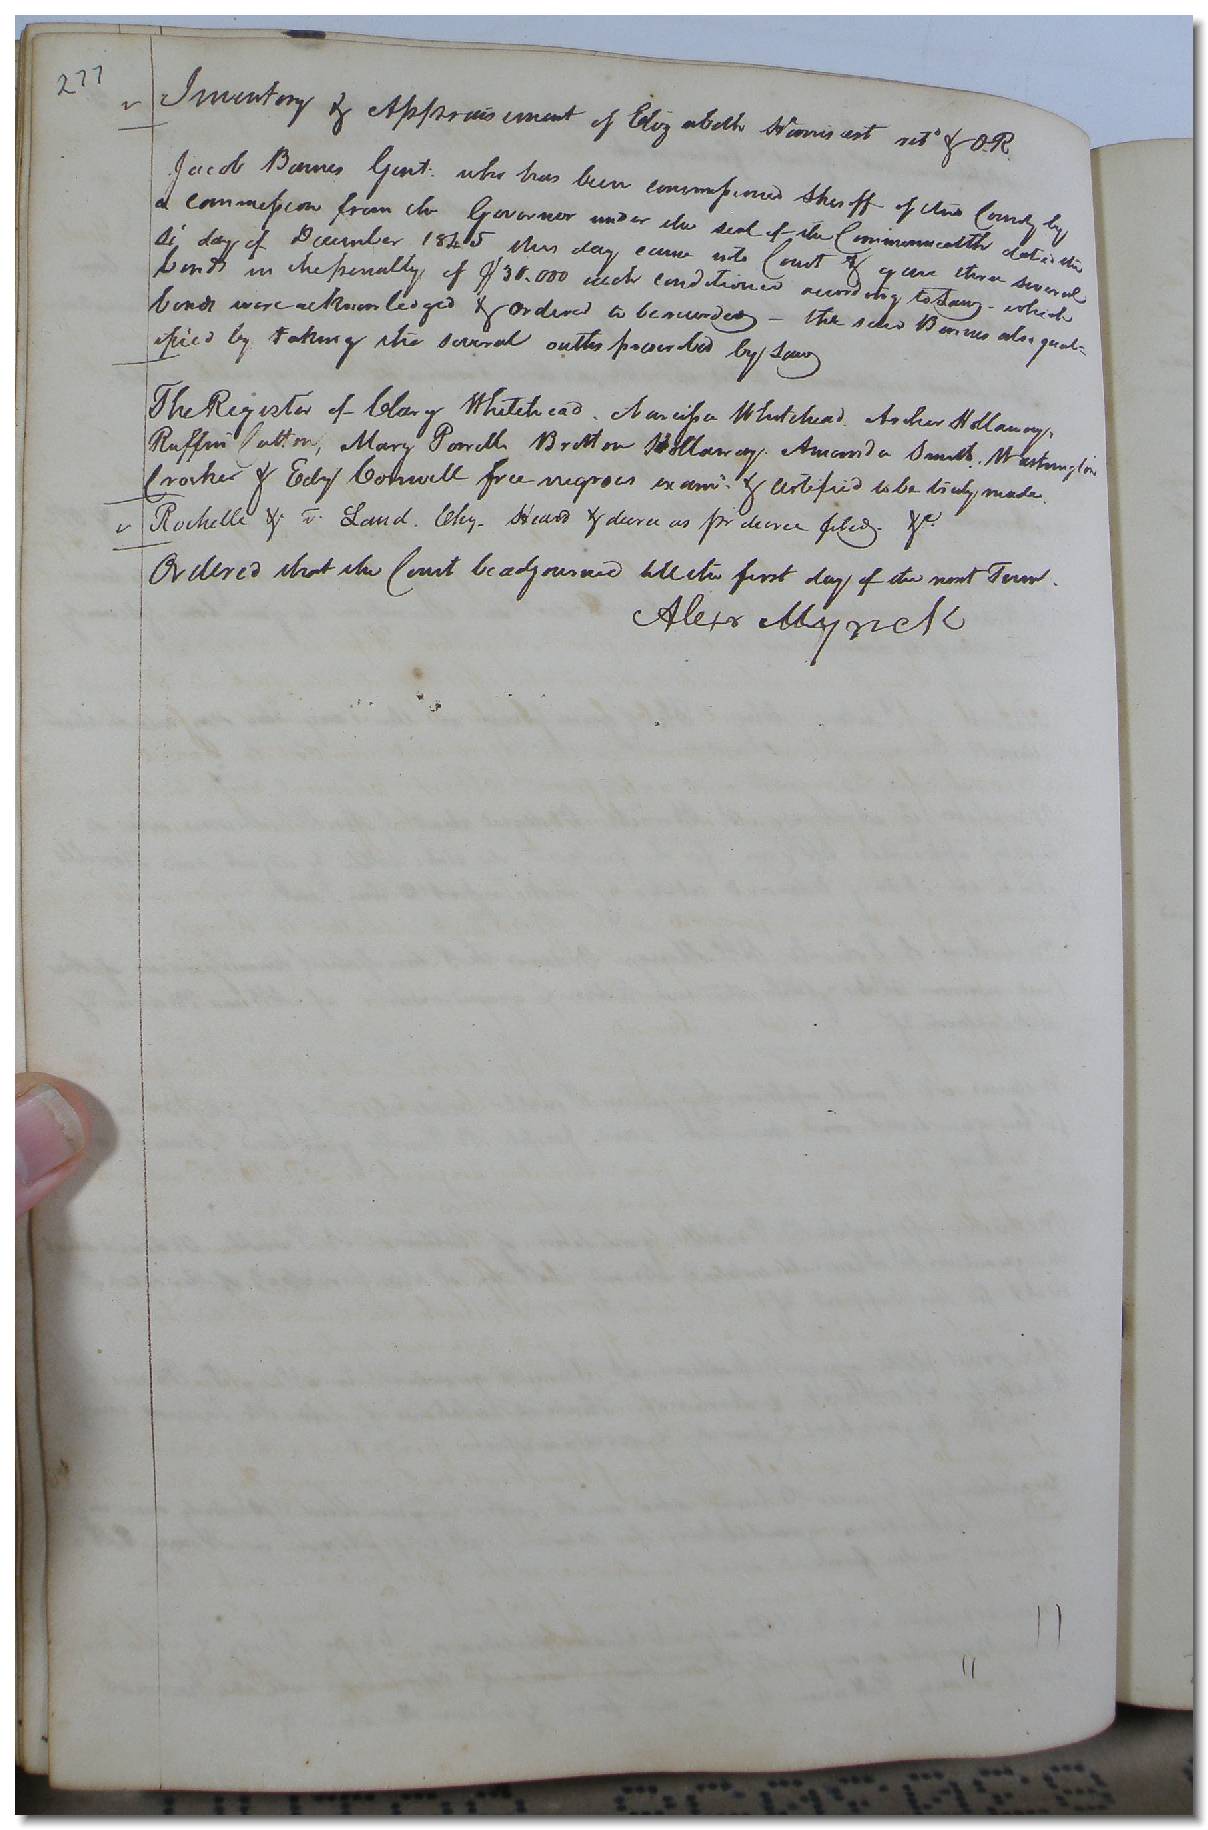 277
Inventory & Appraisement of Elizabeth Harris est retd & O.R.
Jacob Barnes Gent. who has been commissioned Sheriff of this County by
a commission from the Governor under the seal of the Commonwealth dated the
day of December 1845 this day came into Court & gave three several
bonds in the penalty of $30.000 each conditioned according to Law - which
bonds were acknowledged & Ordered to be recorded - the said Barnes also qual-
ified by taking the several oaths prescribed by Law
The Register of Clary Whitehead. Narcissa Whitehead. Archer Hollaway,
Ruffin Cotton, Mary Powell Britton Hollaway. Amanda Smith. Washington
Crocker & Edy Conwell free negroes examd. & Certified to be truly made.
Rochelle &c v. Land. Chy. Heard & decree as pr decree filed &c.
Ordered that the Court be adjourned till the first day of the next Term.
Alexr Myrick